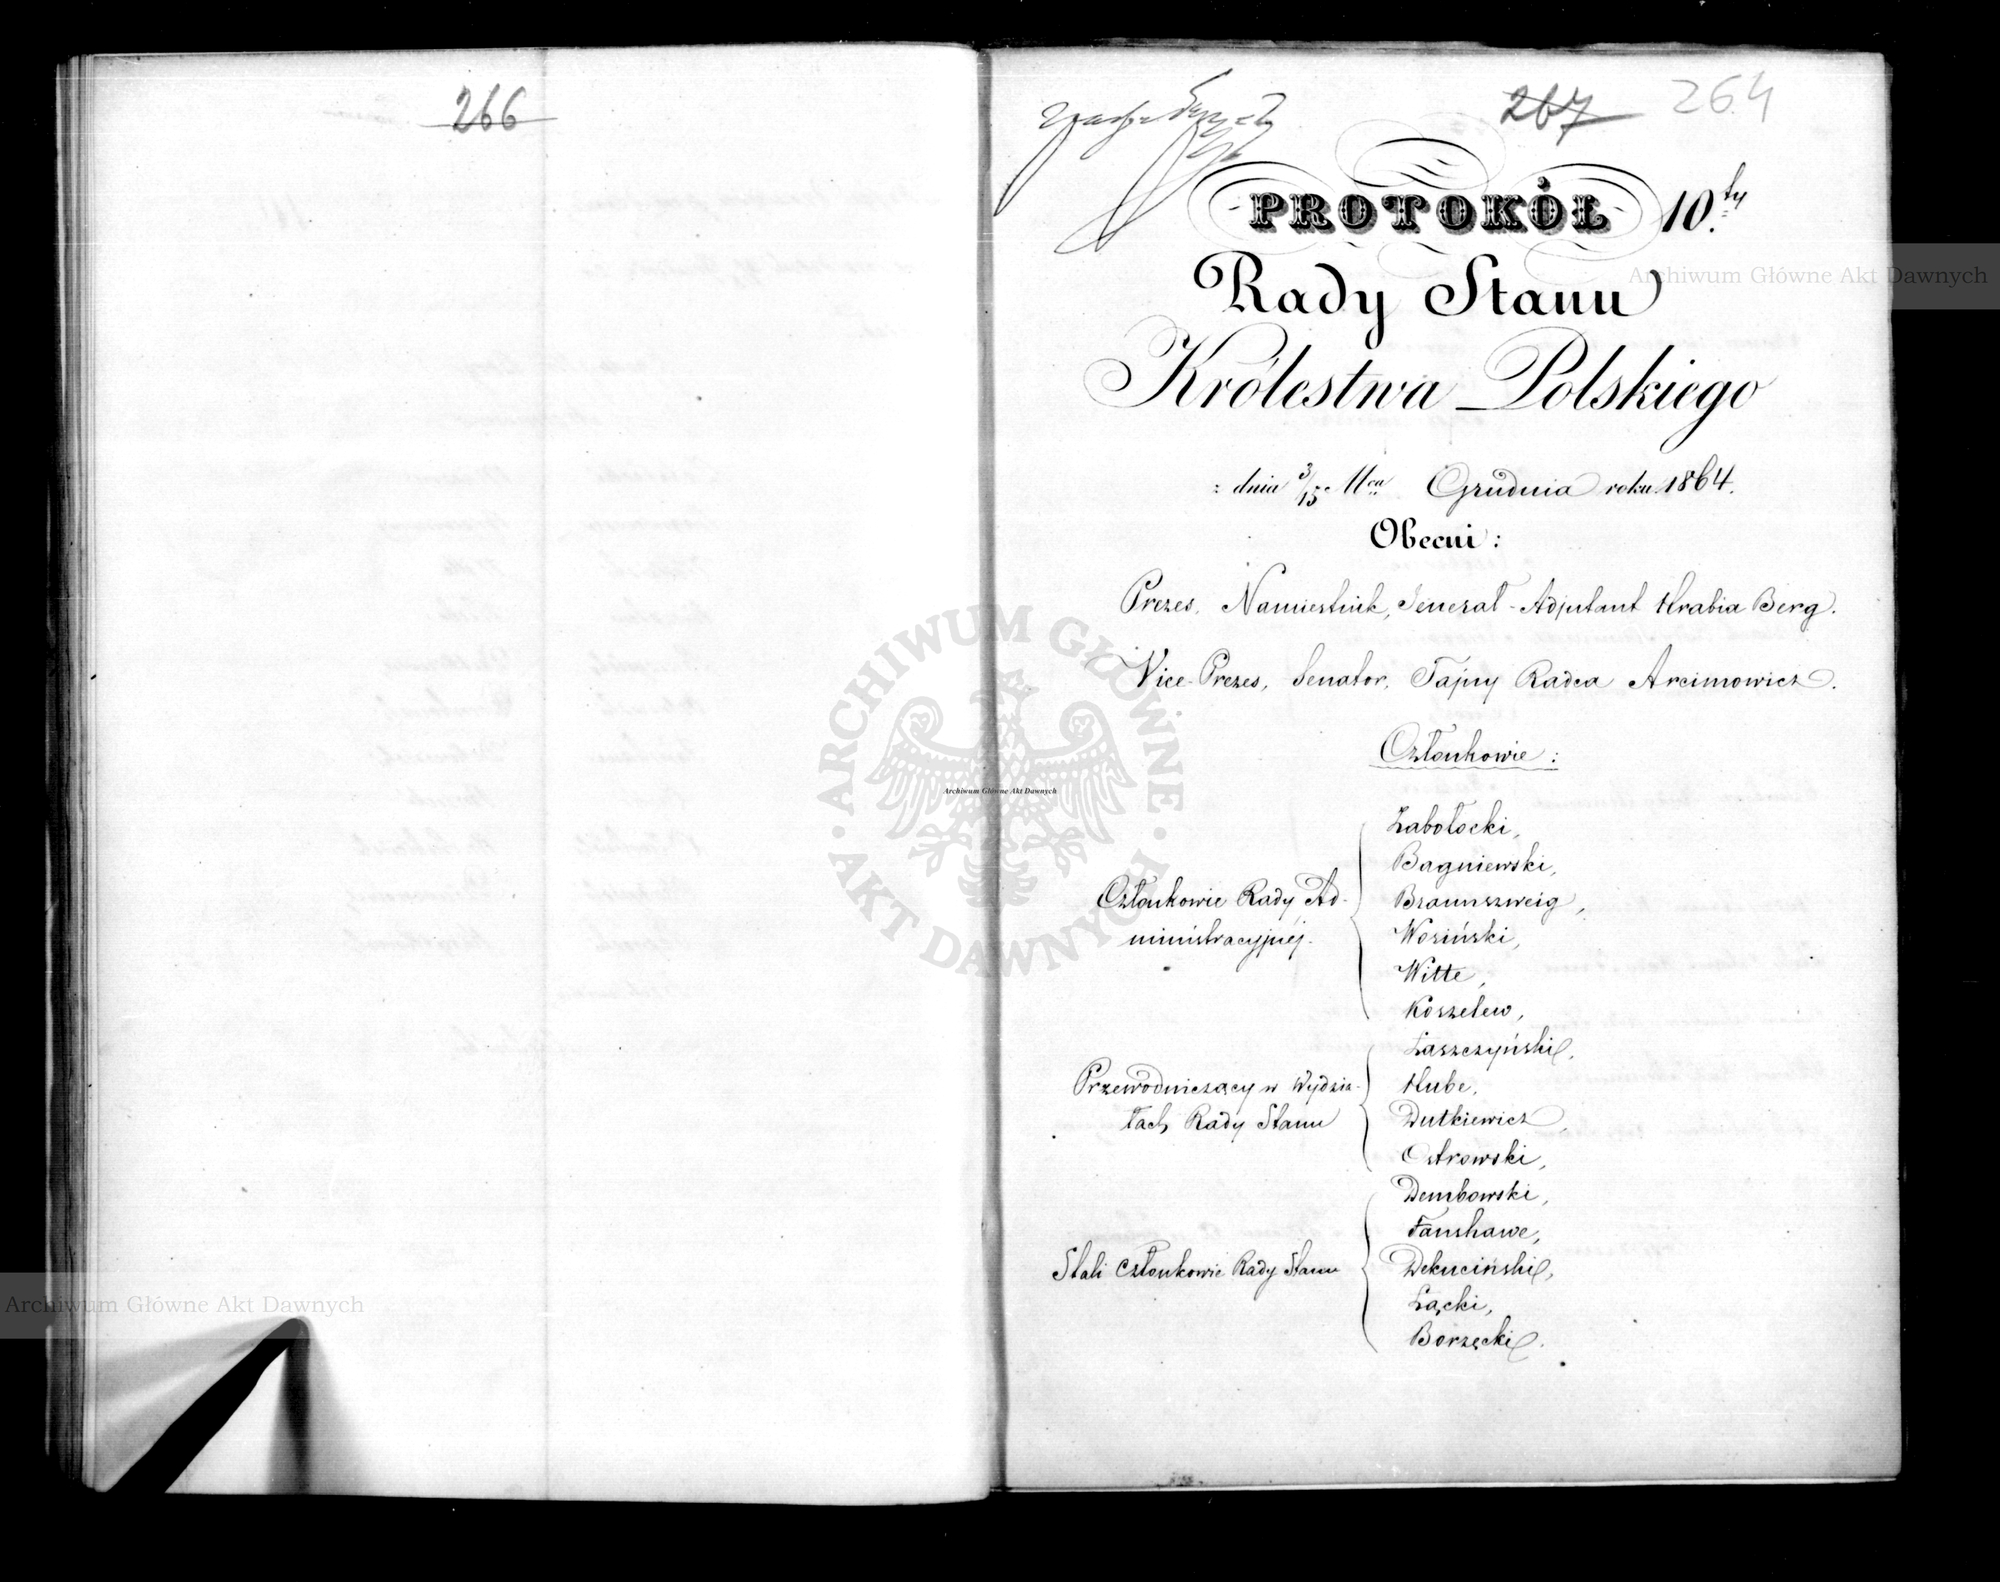 266
267
264
PROTOKÓŁ 10.ty
Rady Stanu
Królestwa Polskiego
dnia 3/15 Mca Grudnia roku 1864.
Obecni:
Prezes, Namiestnik, Jenerał-Adjutant Hrabia Berg.
Vice-Prezes, Senator, Tajny Radca Arcimowicz.
Członkowie:
Członkowie Rady Ad-
ministracyjnéj.
Zabołocki,
Bagniewski,
Braunszweig,
Wosiński,
Witte,
Koszelew,
Przewodniczący w Wydzia-
łach Rady Stanu
Łaszczyński,
Hube,
Dutkiewicz,
Ostrowski,
Stali Członkowie Rady Stanu
Dembowski,
Fanshawe,
Dekuciński,
Łącki,
Borzęcki.
Archiwum Główne Akt Dawnych
ARCHIWUM GŁÓWNE
AKT DAWNYCH
Archiwum Główne Akt Dawnych
Archiwum Główne Akt Dawnych